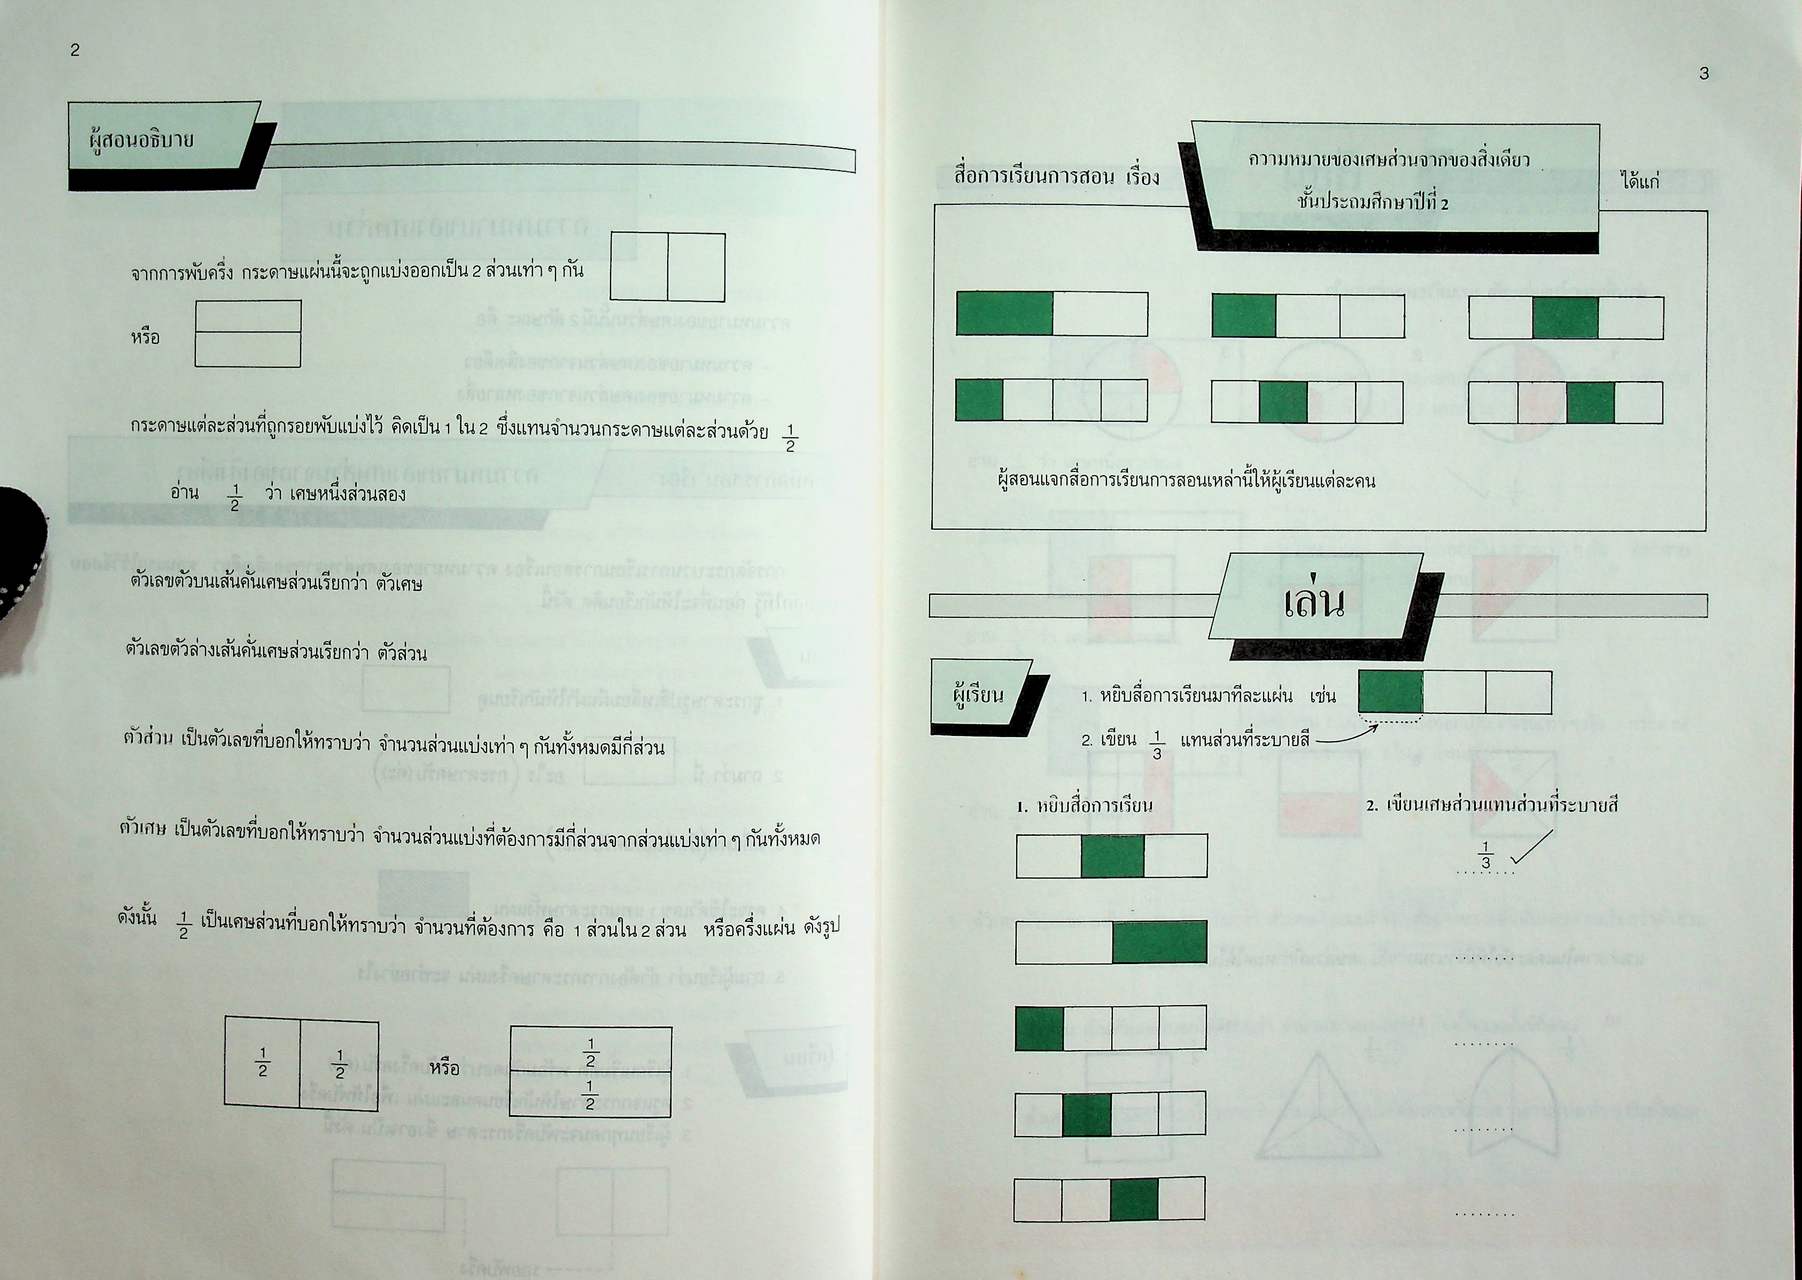 2
ผู้สอนอธิบาย
จากการพับครึ่ง กระดาษแผ่นนี้จะถูกแบ่งออกเป็น 2 ส่วนเท่า ๆ กัน
หรือ
กระดาษแต่ละส่วนที่ถูกรอยพับแบ่งไว้ คิดเป็น 1 ใน 2 ซึ่งแทนจำนวนกระดาษแต่ละส่วนด้วย 1/2
อ่าน 1/2 ว่า เศษหนึ่งส่วนสอง
ตัวเลขตัวบนเส้นคั่นเศษส่วนเรียกว่า ตัวเศษ
ตัวเลขตัวล่างเส้นคั่นเศษส่วนเรียกว่า ตัวส่วน
ตัวส่วน เป็นตัวเลขที่บอกให้ทราบว่า จำนวนส่วนแบ่งเท่า ๆ กันทั้งหมดมีกี่ส่วน
ตัวเศษ เป็นตัวเลขที่บอกให้ทราบว่า จำนวนส่วนแบ่งที่ต้องการมีกี่ส่วนจากส่วนแบ่งเท่า ๆ กันทั้งหมด
ดังนั้น 1/2 เป็นเศษส่วนที่บอกให้ทราบว่า จำนวนที่ต้องการ คือ 1 ส่วนใน 2 ส่วน หรือครึ่งแผ่น ดังรูป
1/2 1/2 หรือ 1/2
1/2
3
สื่อการเรียนการสอน เรื่อง
ความหมายของเศษส่วนจากของสิ่งเดียว
ชั้นประถมศึกษาปีที่ 2
ได้แก่
ผู้สอนแจกสื่อการเรียนการสอนเหล่านี้ให้ผู้เรียนแต่ละคน
เล่น
ผู้เรียน
1. หยิบสื่อการเรียนมาทีละแผ่น เช่น
2. เขียน 1/3 แทนส่วนที่ระบายสี
1. หยิบสื่อการเรียน
2. เขียนเศษส่วนแทนส่วนที่ระบายสี
1/3 ✓
........
........
........
........
........